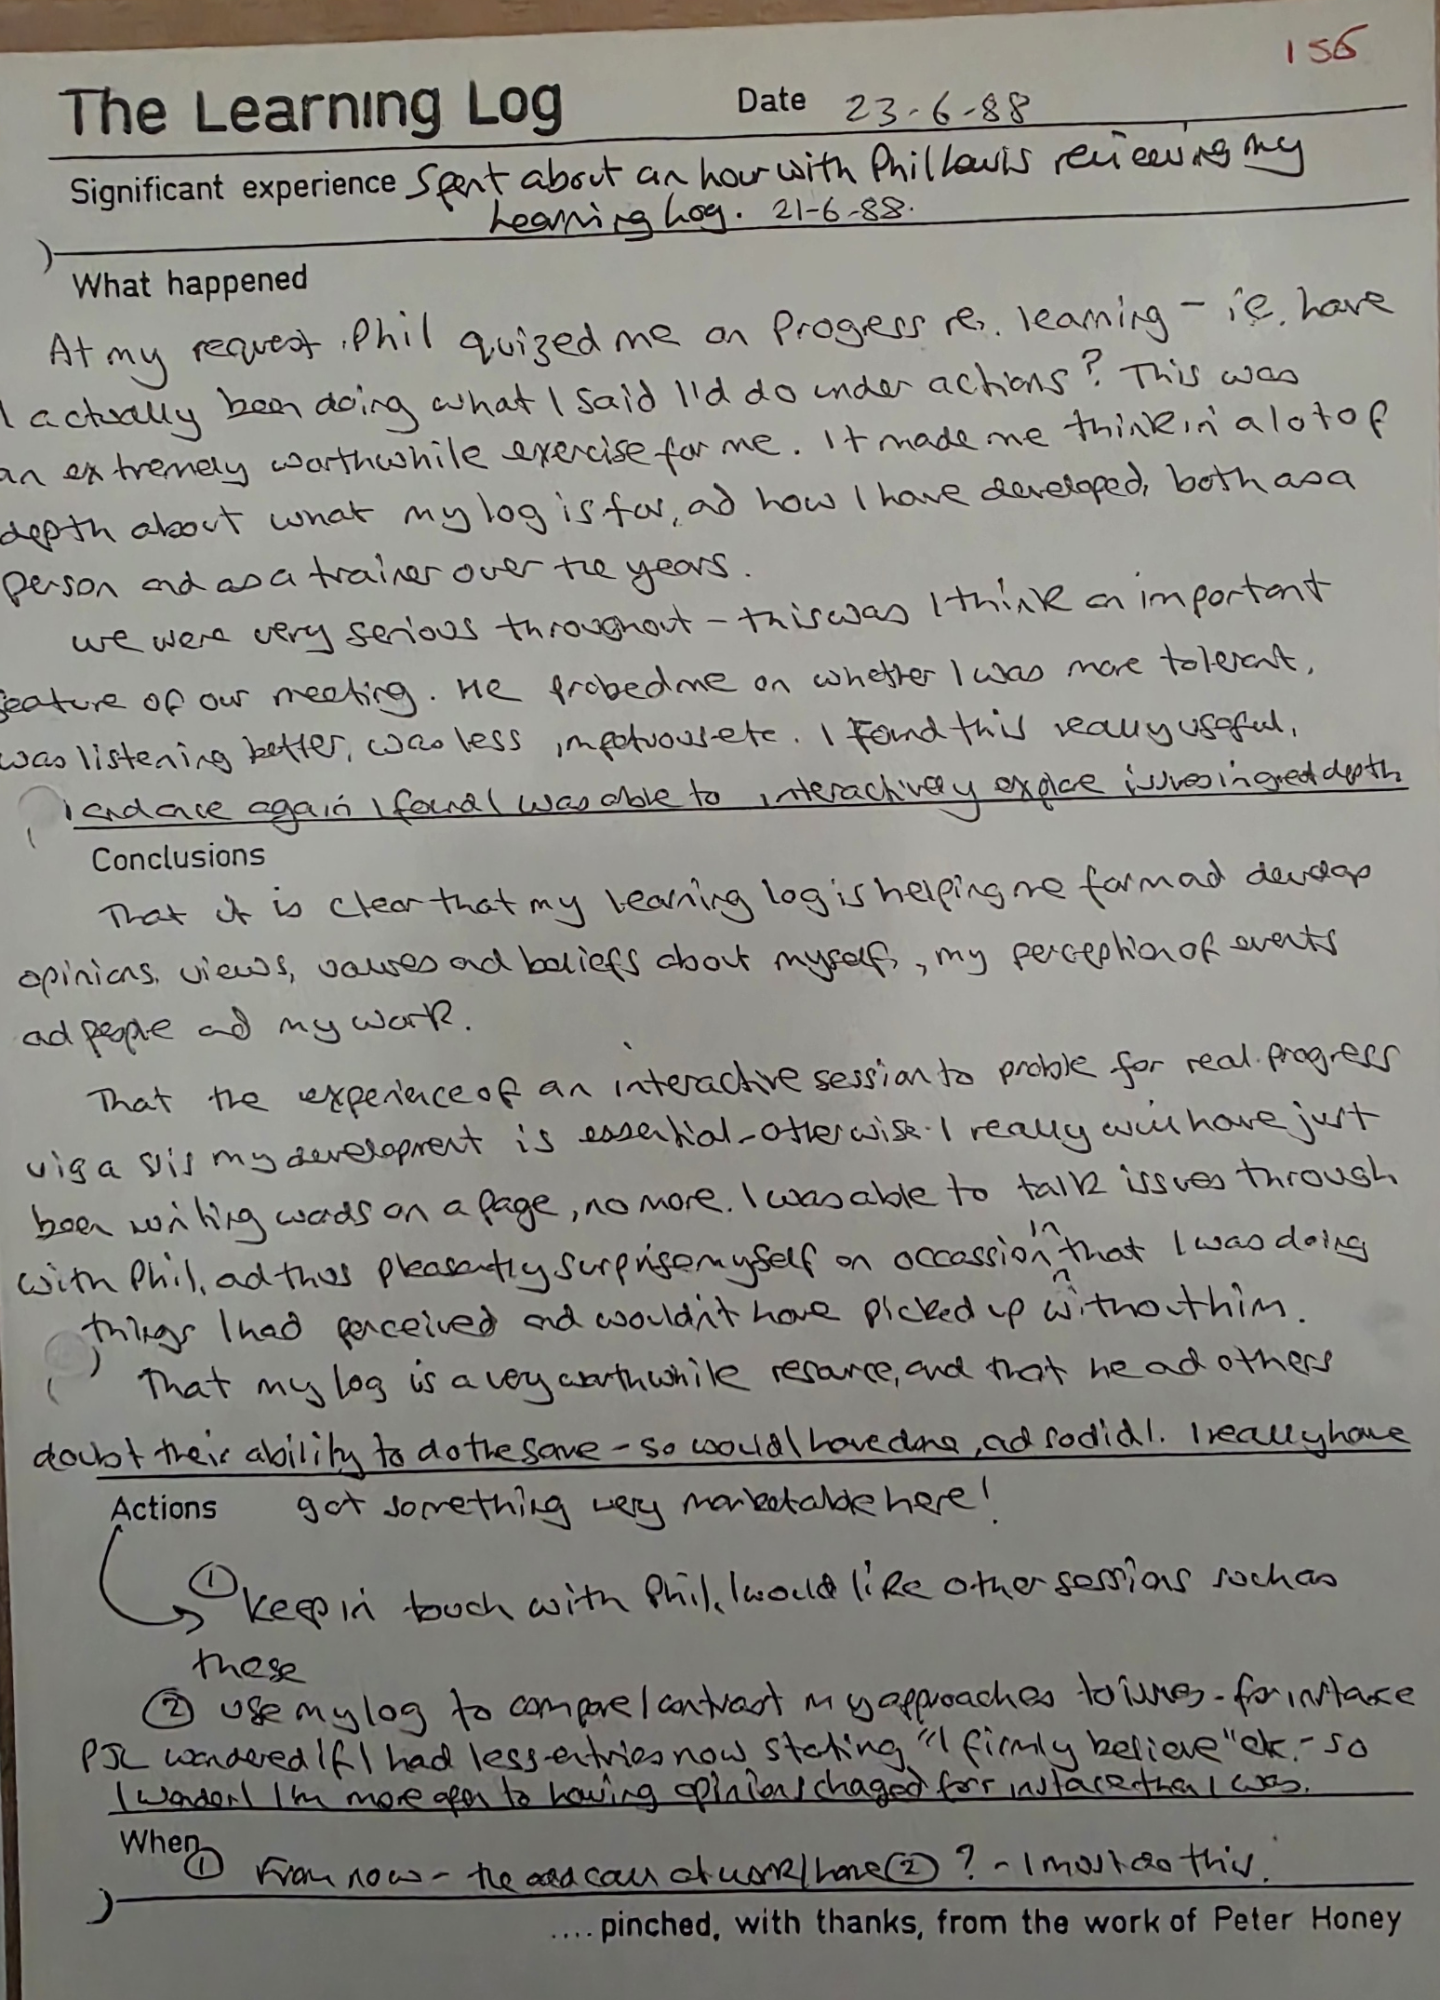 156
The Learning Log Date 23-6-88
Significant experience Spent about an hour with Phil Lewis reviewing my
Learning Log. 21-6-88.
What happened
At my request, Phil quized me on Progress re. learning - ie. have
I actually been doing what I said I'd do under actions? This was
an extremely worthwhile exercise for me. It made me think in a lot of
depth about what my log is for, ad how I have developed, both as a
person and as a trainer over the years.
We were very serious throughout - this was I think an important
feature of our meeting. He probed me on whether I was more tolerant,
was listening better, was less impetuous etc. I found this really useful,
and once again I found I was able to interactively explore issues in great depth
Conclusions
That it is clear that my learning log is helping me form ad develop
opinions, views, values ad beliefs about myself, my perception of events
ad people ad my work.
That the experience of an interactive session to proble for real progress
vis a vis my development is essential - otherwise I really will have just
been writing words on a page, no more. I was able to talk issues through
with Phil, ad thus pleasantly surprise myself on occassion in that I was doing
things I had perceived and wouldn't have picked up without him.
That my log is a very worthwhile resource, and that he ad others
doubt their ability to do the same - so would I have done, ad so did I. I really have
Actions got something very marketable here!
① Keep in touch with Phil, I would like other sessions such as
these
② Use my log to compare/contrast my approaches to issues - for instance
PJL wondered if I had less entries now stating "I firmly believe" etc. - so
I wonder! I'm more open to having opinions chaged for instace then I was.
When
① From now - the odd call at work/home ② ? - I must do this.
.... pinched, with thanks, from the work of Peter Honey